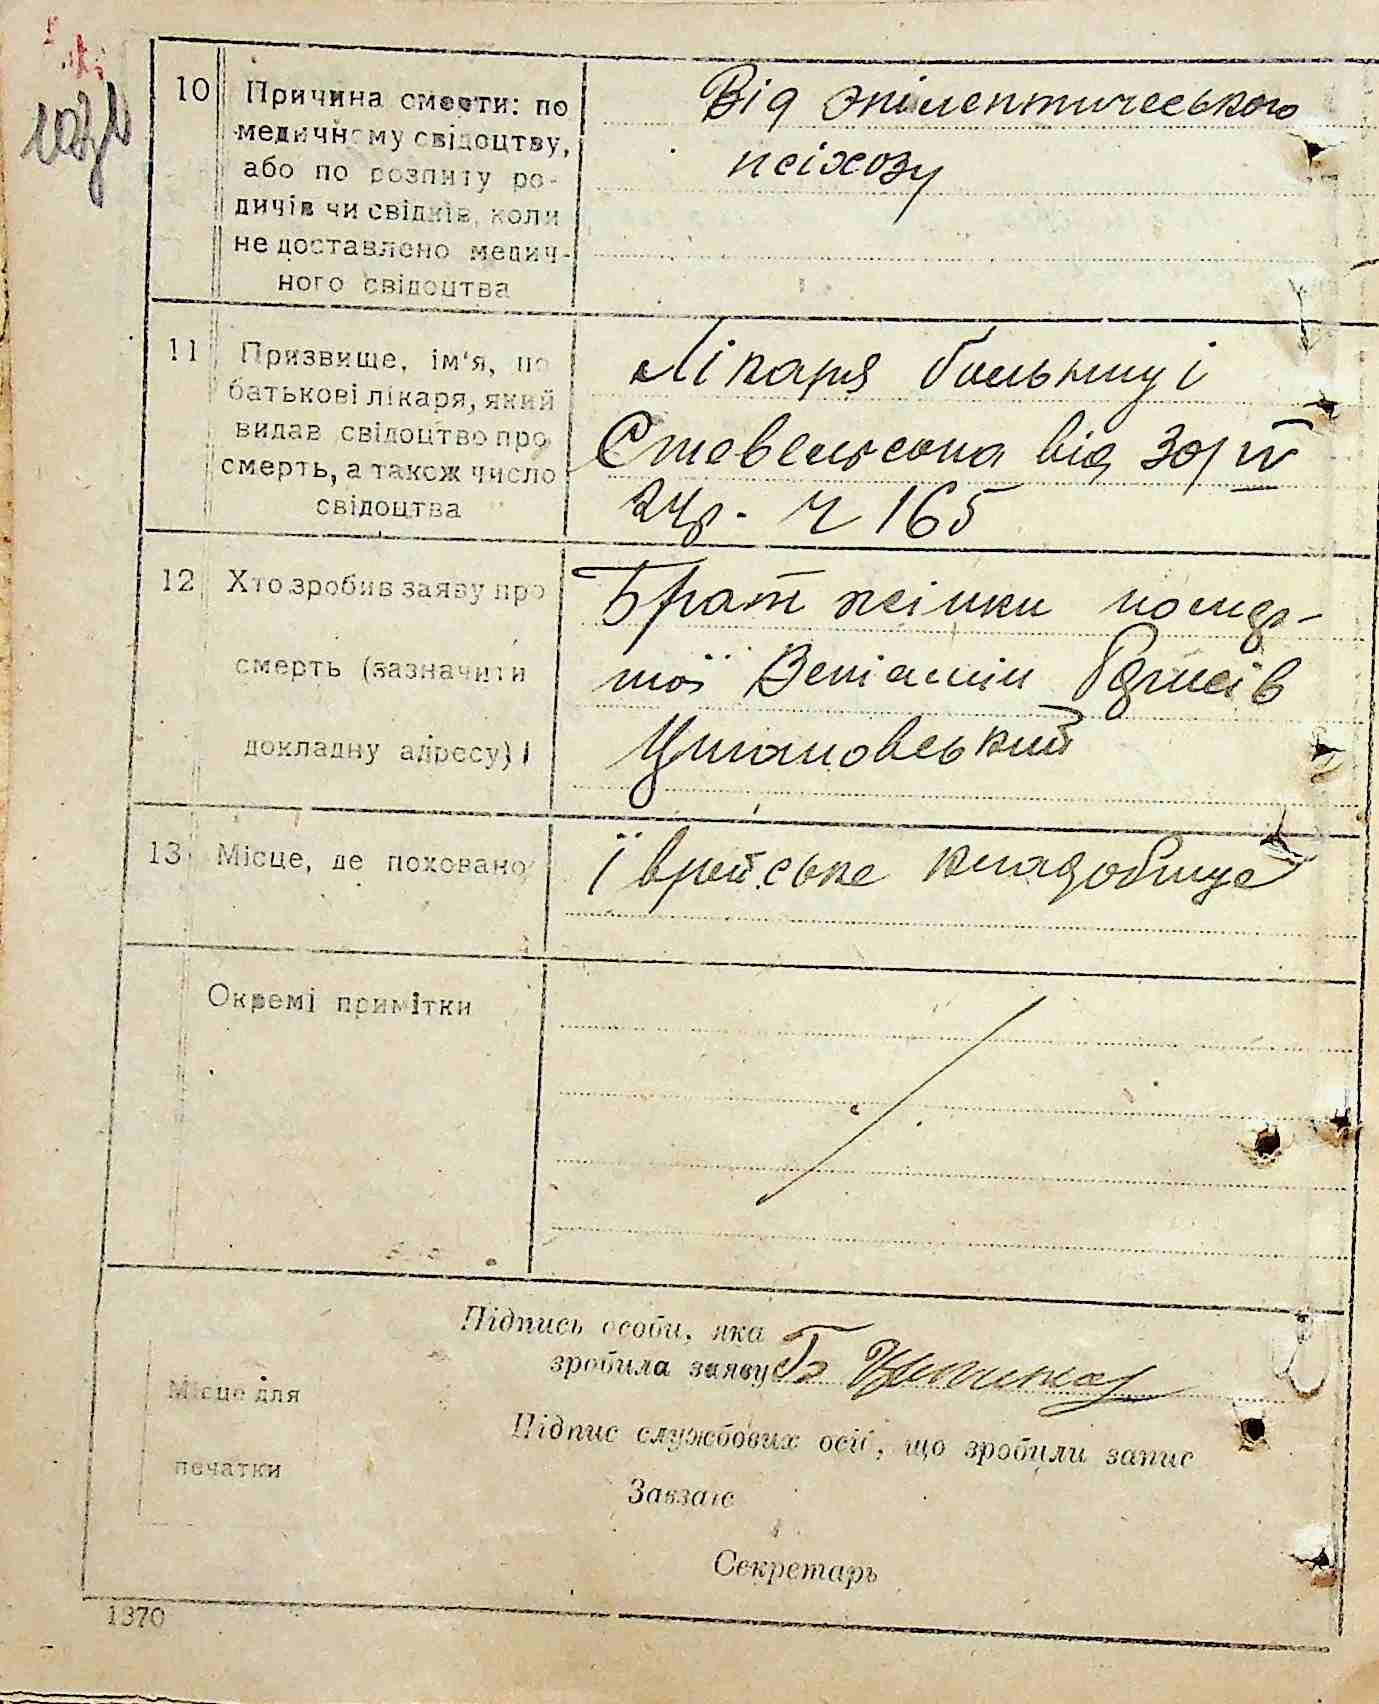 10 Причина смерти: по
медичному свідоцтву,
або по розпиту ро-
дичів чи свідків, коли
не доставлено медич-
ного свідоцтва
Від эпілептичеського
псіхозу
11 Призвище, ім'я, по
батькові лікаря, який
видав свідоцтво про
смерть, а також число
свідоцтва
Лікаря больниці
від 30/IV
24р. Ч 165
12 Хто зробив заяву про
смерть (зазначити
докладну адресу)
Брат жінки помер-
тої Веніамін
Цигановський
13 Місце, де поховано
Їврейське кладобище
Окремі примітки
Підпись особи, яка
зробила заяву
Підпис службових осіб, що зробили запис
Місце для
печатки
Завзагс
Секретарь
1370